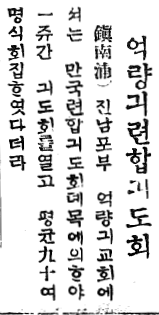 억량긔련합긔도회
(鎭南浦) 진남포부 억량긔교회에
셔는 만국련합긔도회데목에의ᄒᆞ야
一쥬간 긔도회를열고 평균九十여
명식회집ᄒᆞ엿다더라